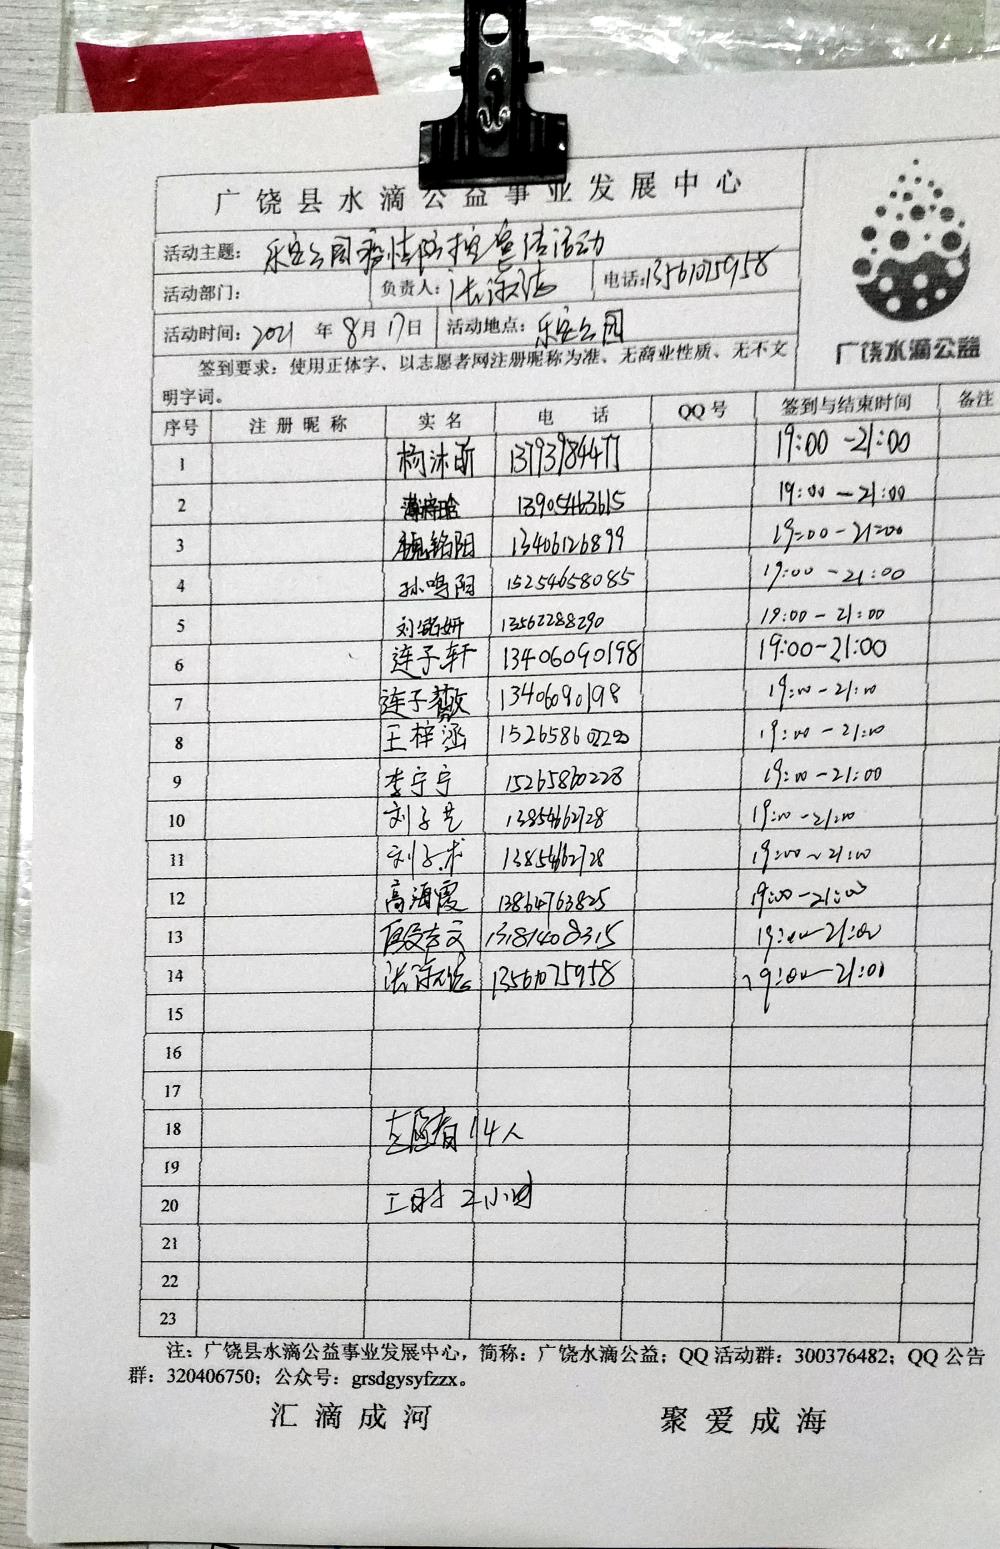 广饶县水滴公益事业发展中心
广饶水滴公益
活动主题：乐安公园疫情防控宣传活动
活动部门： 负责人： 电话：13561075958
活动时间：2021年8月17日 活动地点：乐安公园
签到要求：使用正体字、以志愿者网注册昵称为准、无商业性质、无不文
明字词。
序号 注册昵称 实名 电话 QQ号 签到与结束时间 备注
1 杨沐昕 13793984477 19:00-21:00
2 13905463615 19:00-21:00
3 魏铭阳 13406126899 19:00-21:00
4 孙鸣阳 15254658085 19:00-21:00
5 刘铭妍 13562288290 19:00-21:00
6 连子轩 13406090198 19:00-21:00
7 连子 13406090198 19:00-21:00
8 王梓涵 19:00-21:00
9 李宁宁 15265860228 19:00-21:00
10 刘子艺 13854662728 19:00-21:00
11 刘子术 13854662728 19:00-21:00
12 高海霞 13864763825 19:00-21:00
13 13181408315 19:00-21:00
14 13561075958 19:00-21:00
15
16
17
18 志愿者14人
19
20 工时2小时
21
22
23
注：广饶县水滴公益事业发展中心，简称：广饶水滴公益；QQ活动群：300376482；QQ公告
群：320406750；公众号：grsdgysyfzzx。
汇滴成河 聚爱成海